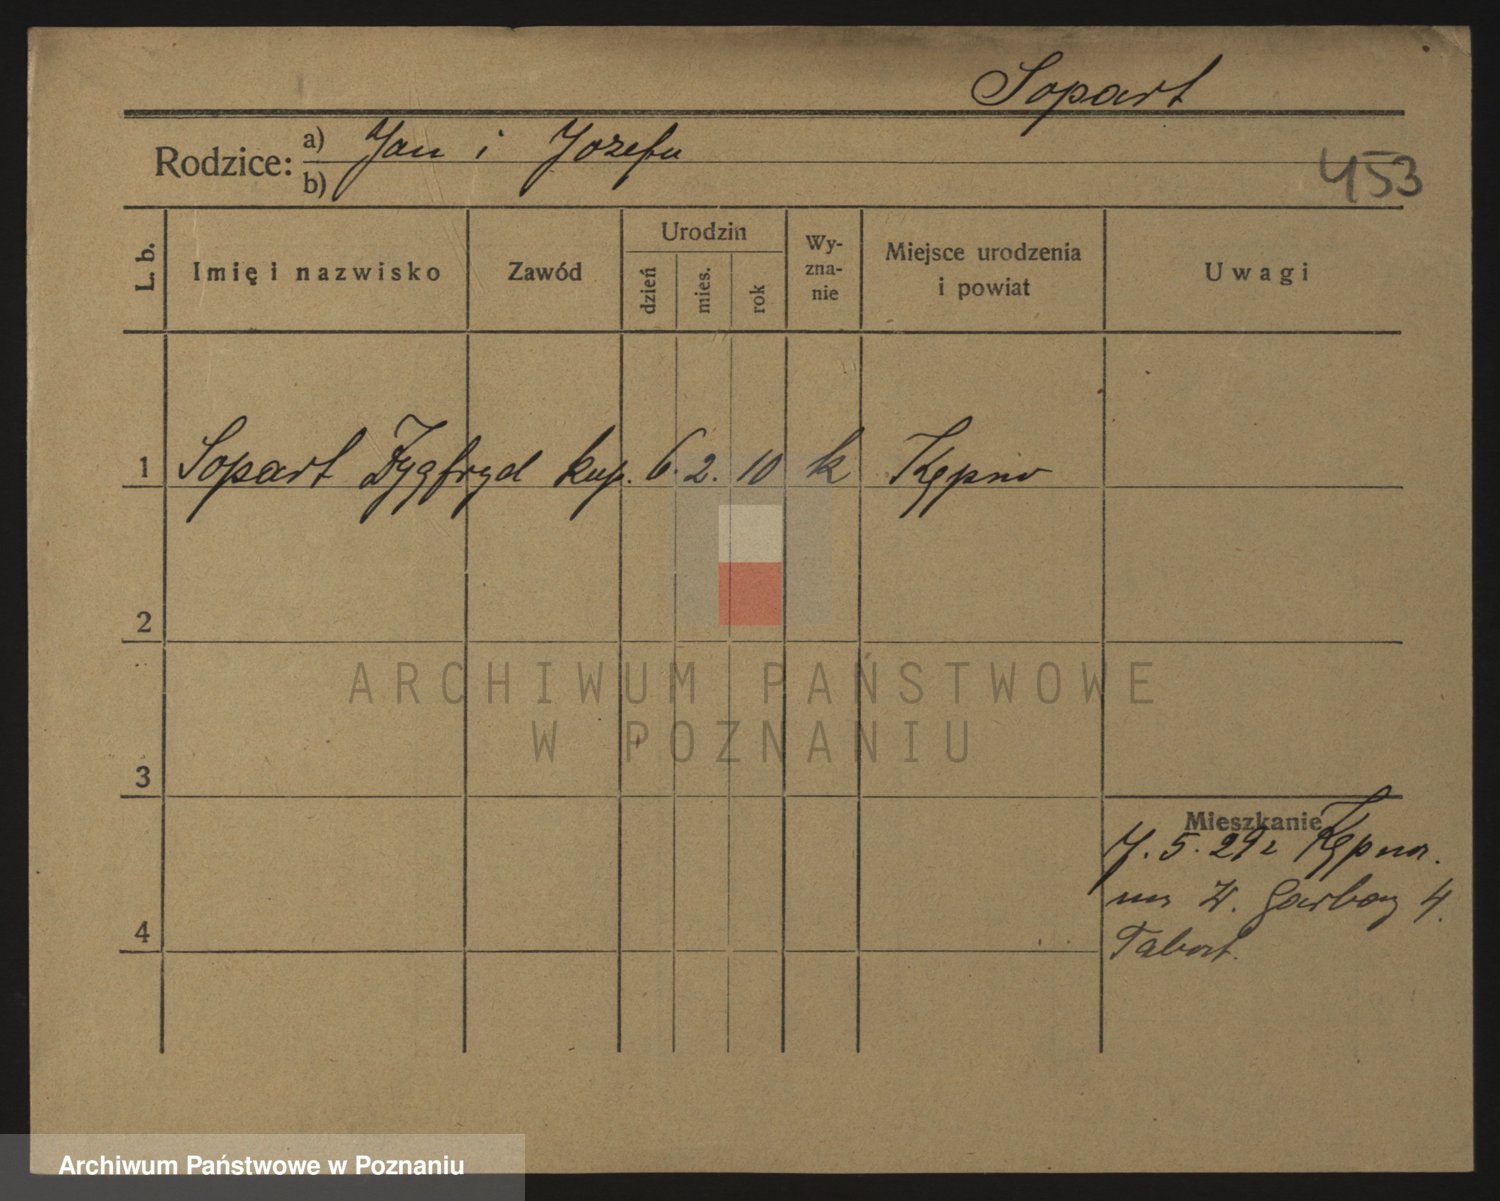 Sopart
Rodzice: a) Jan i Jozefa
b)
453
L. b. Imię i nazwisko Zawód Urodzin dzień mies. rok Wy-zna-nie Miejsce urodzenia i powiat Uwagi
1 Sopart Zygfryd kup. 6. 2. 10 k Kępno
2
ARCHIWUM PAŃSTWOWE
W POZNANIU
3
Mieszkanie
7. 5. 29 z Kępna.
na W. Garbary 4.
4
Archiwum Państwowe w Poznaniu